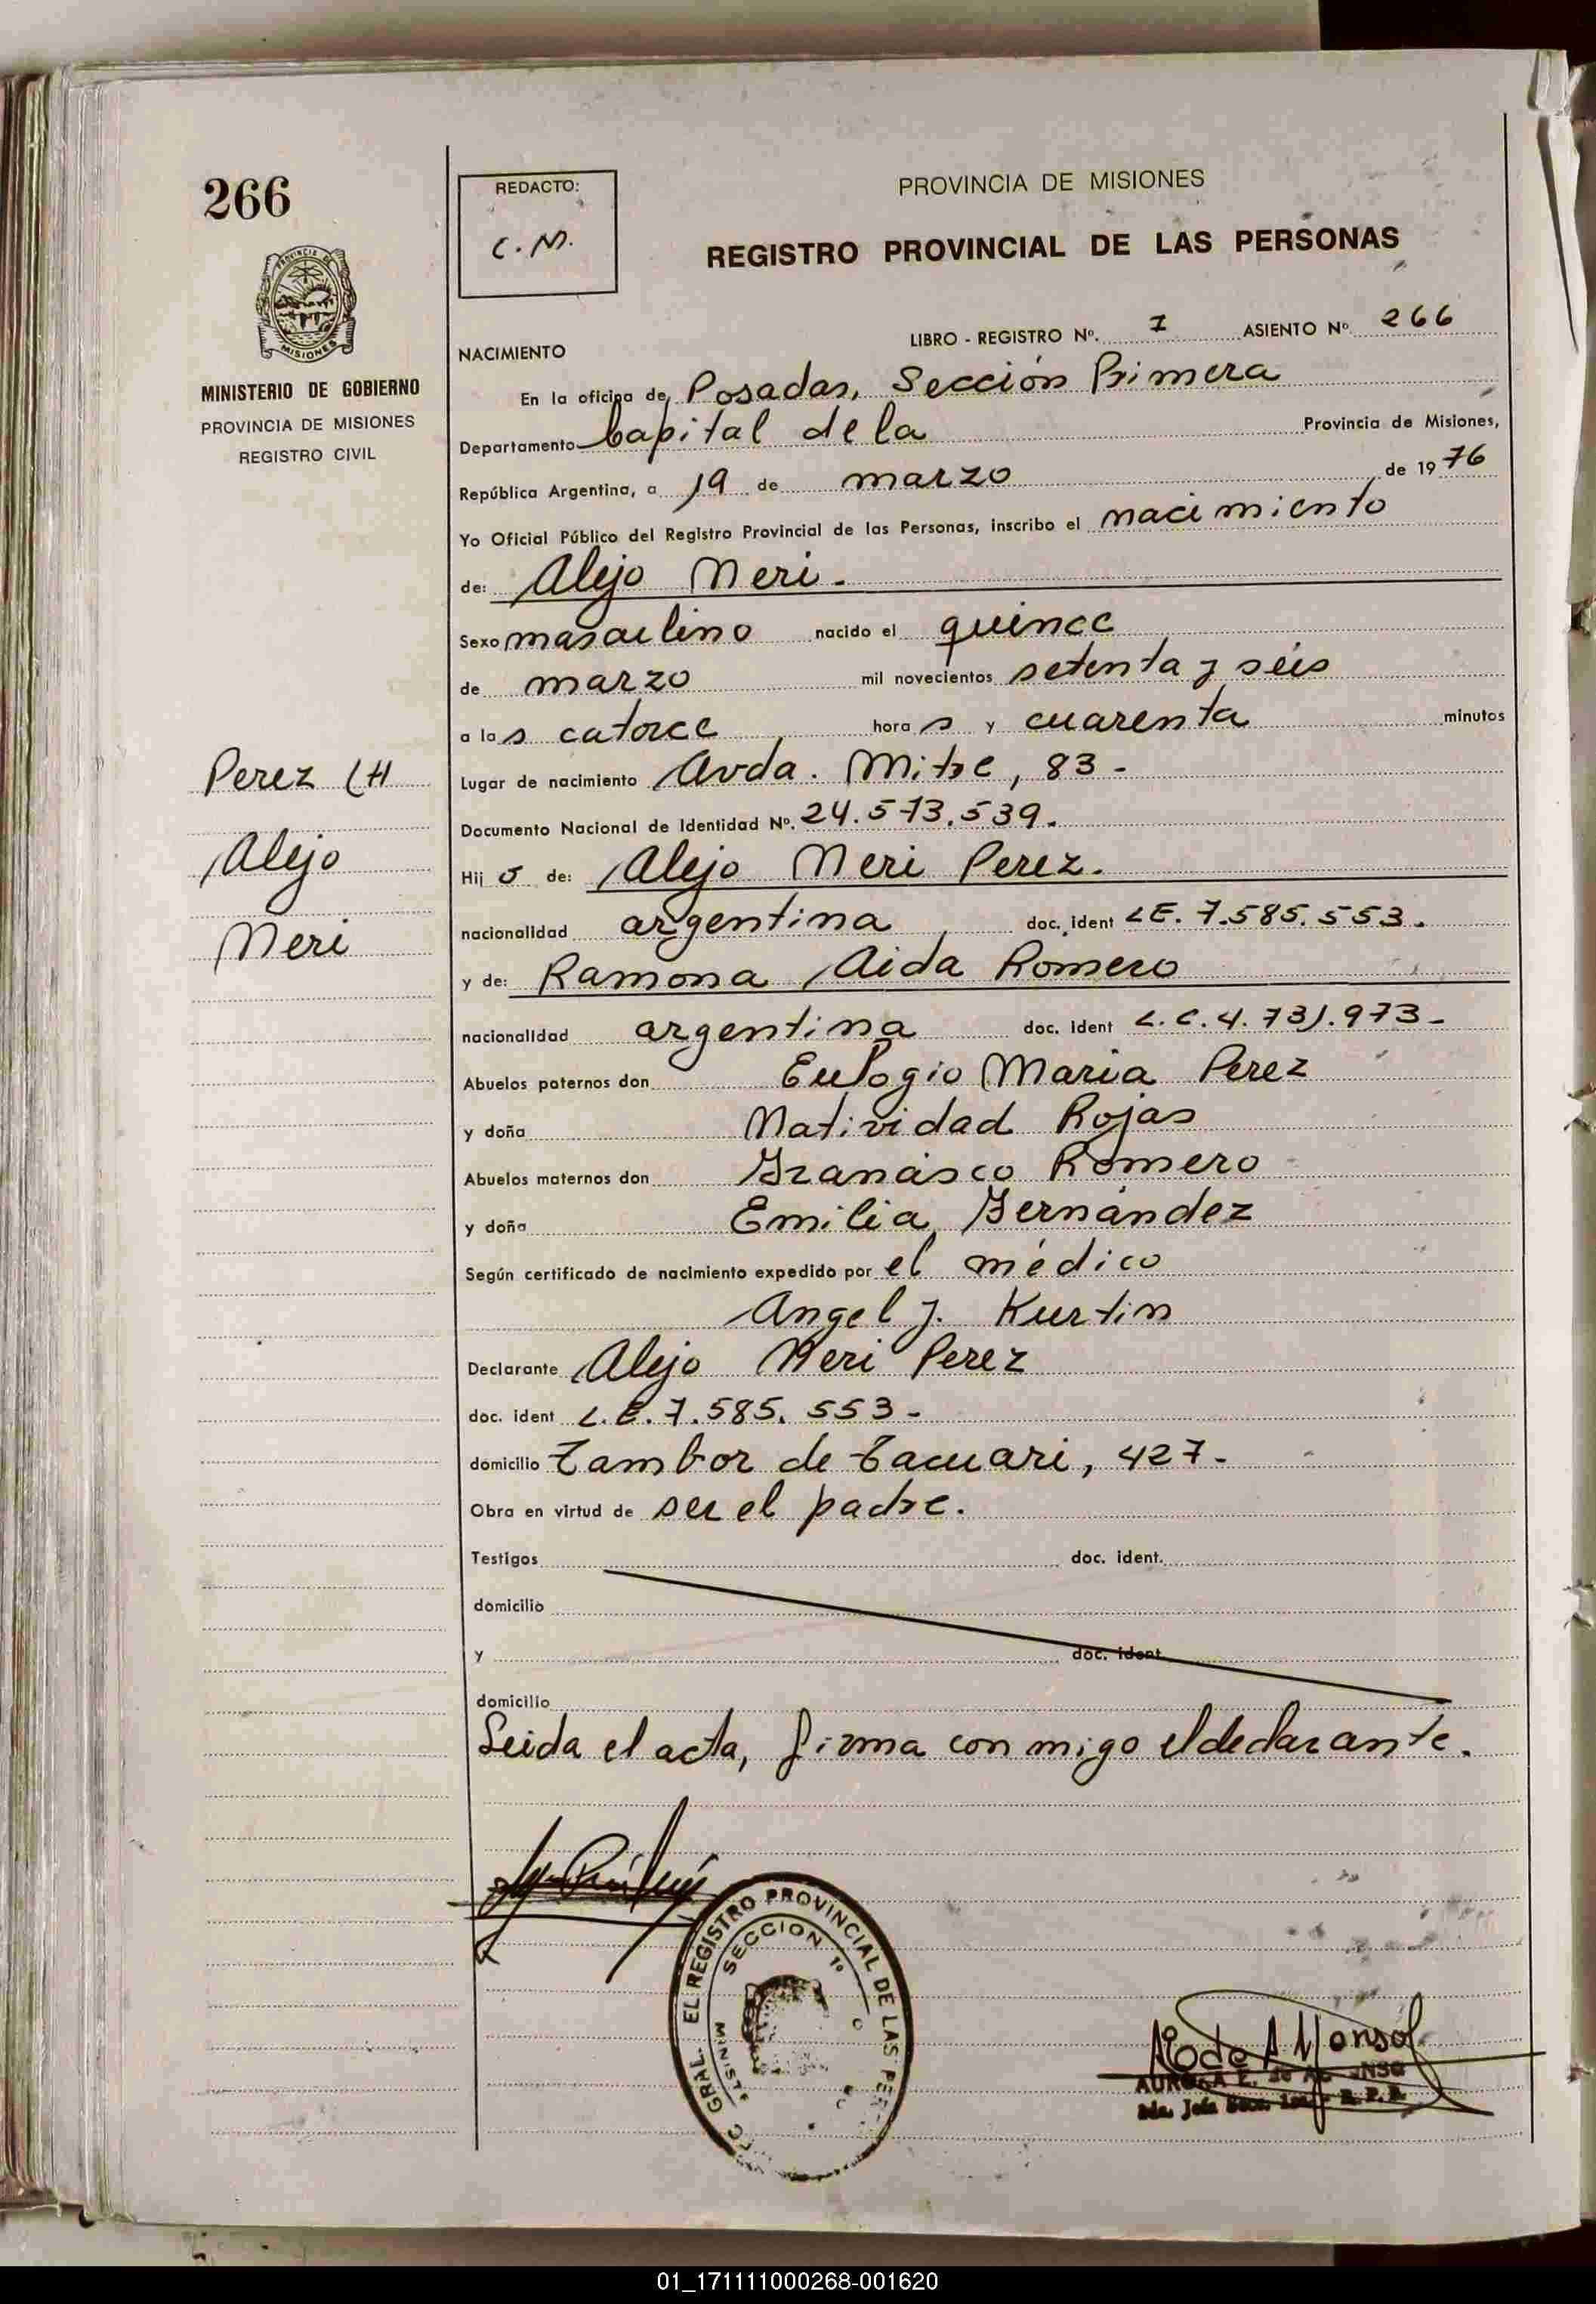 266
PROVINCIA DE
MISIONES
MINISTERIO DE GOBIERNO
PROVINCIA DE MISIONES
REGISTRO CIVIL
Perez (H
Alejo
Neri
REDACTO:
C. M.
PROVINCIA DE MISIONES
REGISTRO PROVINCIAL DE LAS PERSONAS
LIBRO - REGISTRO Nº. 1 ASIENTO Nº 266
NACIMIENTO
En la oficina de Posadas, Sección Primera
Departamento Capital de la Provincia de Misiones,
República Argentina, a 19 de marzo de 1976
Yo Oficial Público del Registro Provincial de las Personas, inscribo el nacimiento
de: Alejo Neri.
Sexo masculino nacido el quince
de marzo mil novecientos setenta y séis
a las catorce horas y cuarenta minutos
Lugar de nacimiento Avda. Mitre, 83 -
Documento Nacional de Identidad Nº. 24.573.539.
Hijo de: Alejo Neri Perez.
nacionalidad argentina doc. ident LE. 7.585.553.
y de: Ramona Aida Romero
nacionalidad argentina doc. ident L.C. 4.731.973-
Abuelos paternos don Eulogio Maria Perez
y doña Natividad Rojas
Abuelos maternos don Romero
y doña Emilia Fernández
Según certificado de nacimiento expedido por el médico
Angel J. Kurtin
Declarante Alejo Neri Perez
doc. ident L.E. 7.585.553-
domicilio Tambor de Tacuari, 427-
Obra en virtud de ser el padre.
Testigos doc. ident.
domicilio
y doc. ident
domicilio
Leida el acta, firma con migo el declarante.
GRAL. EL REGISTRO PROVINCIAL DE LAS PER
SECCION 1º
01_171111000268-001620